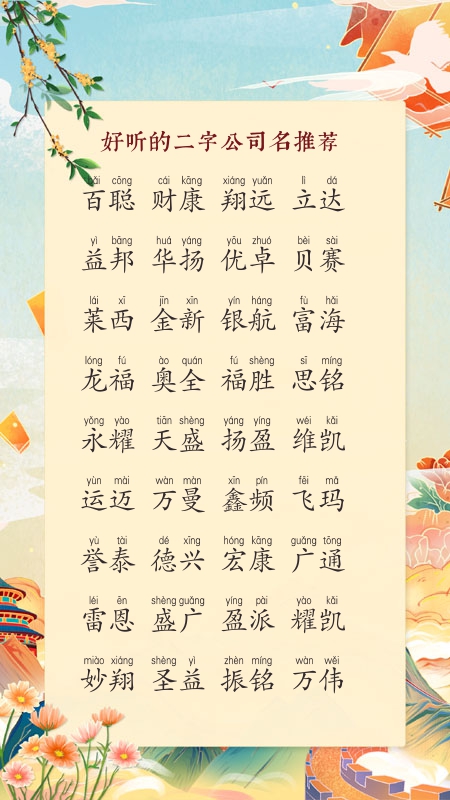 好听的二字公司名推荐
bǎi cōng cái kāng xiáng yuǎn lì dá
百聪 财康 翔远 立达
yì bāng huá yáng yōu zhuó bèi sài
益邦 华扬 优卓 贝赛
lái xī jīn xīn yín háng fù hǎi
莱西 金新 银航 富海
lóng fú ào quán fú shèng sī míng
龙福 奥全 福胜 思铭
yǒng yào tiān shèng yáng yíng wéi kǎi
永耀 天盛 扬盈 维凯
yùn mài wàn màn xīn pín fēi mǎ
运迈 万曼 鑫频 飞玛
yù tài dé xīng hóng kāng guǎng tōng
誉泰 德兴 宏康 广通
léi ēn shèng guǎng yíng pài yào kǎi
雷恩 盛广 盈派 耀凯
miào xiáng shèng yì zhèn míng wàn wěi
妙翔 圣益 振铭 万伟